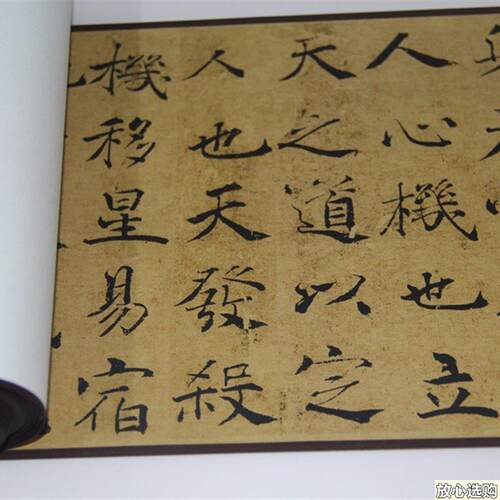 人心機也立
天之道以定
人也天發殺
機移星易宿
放心选购